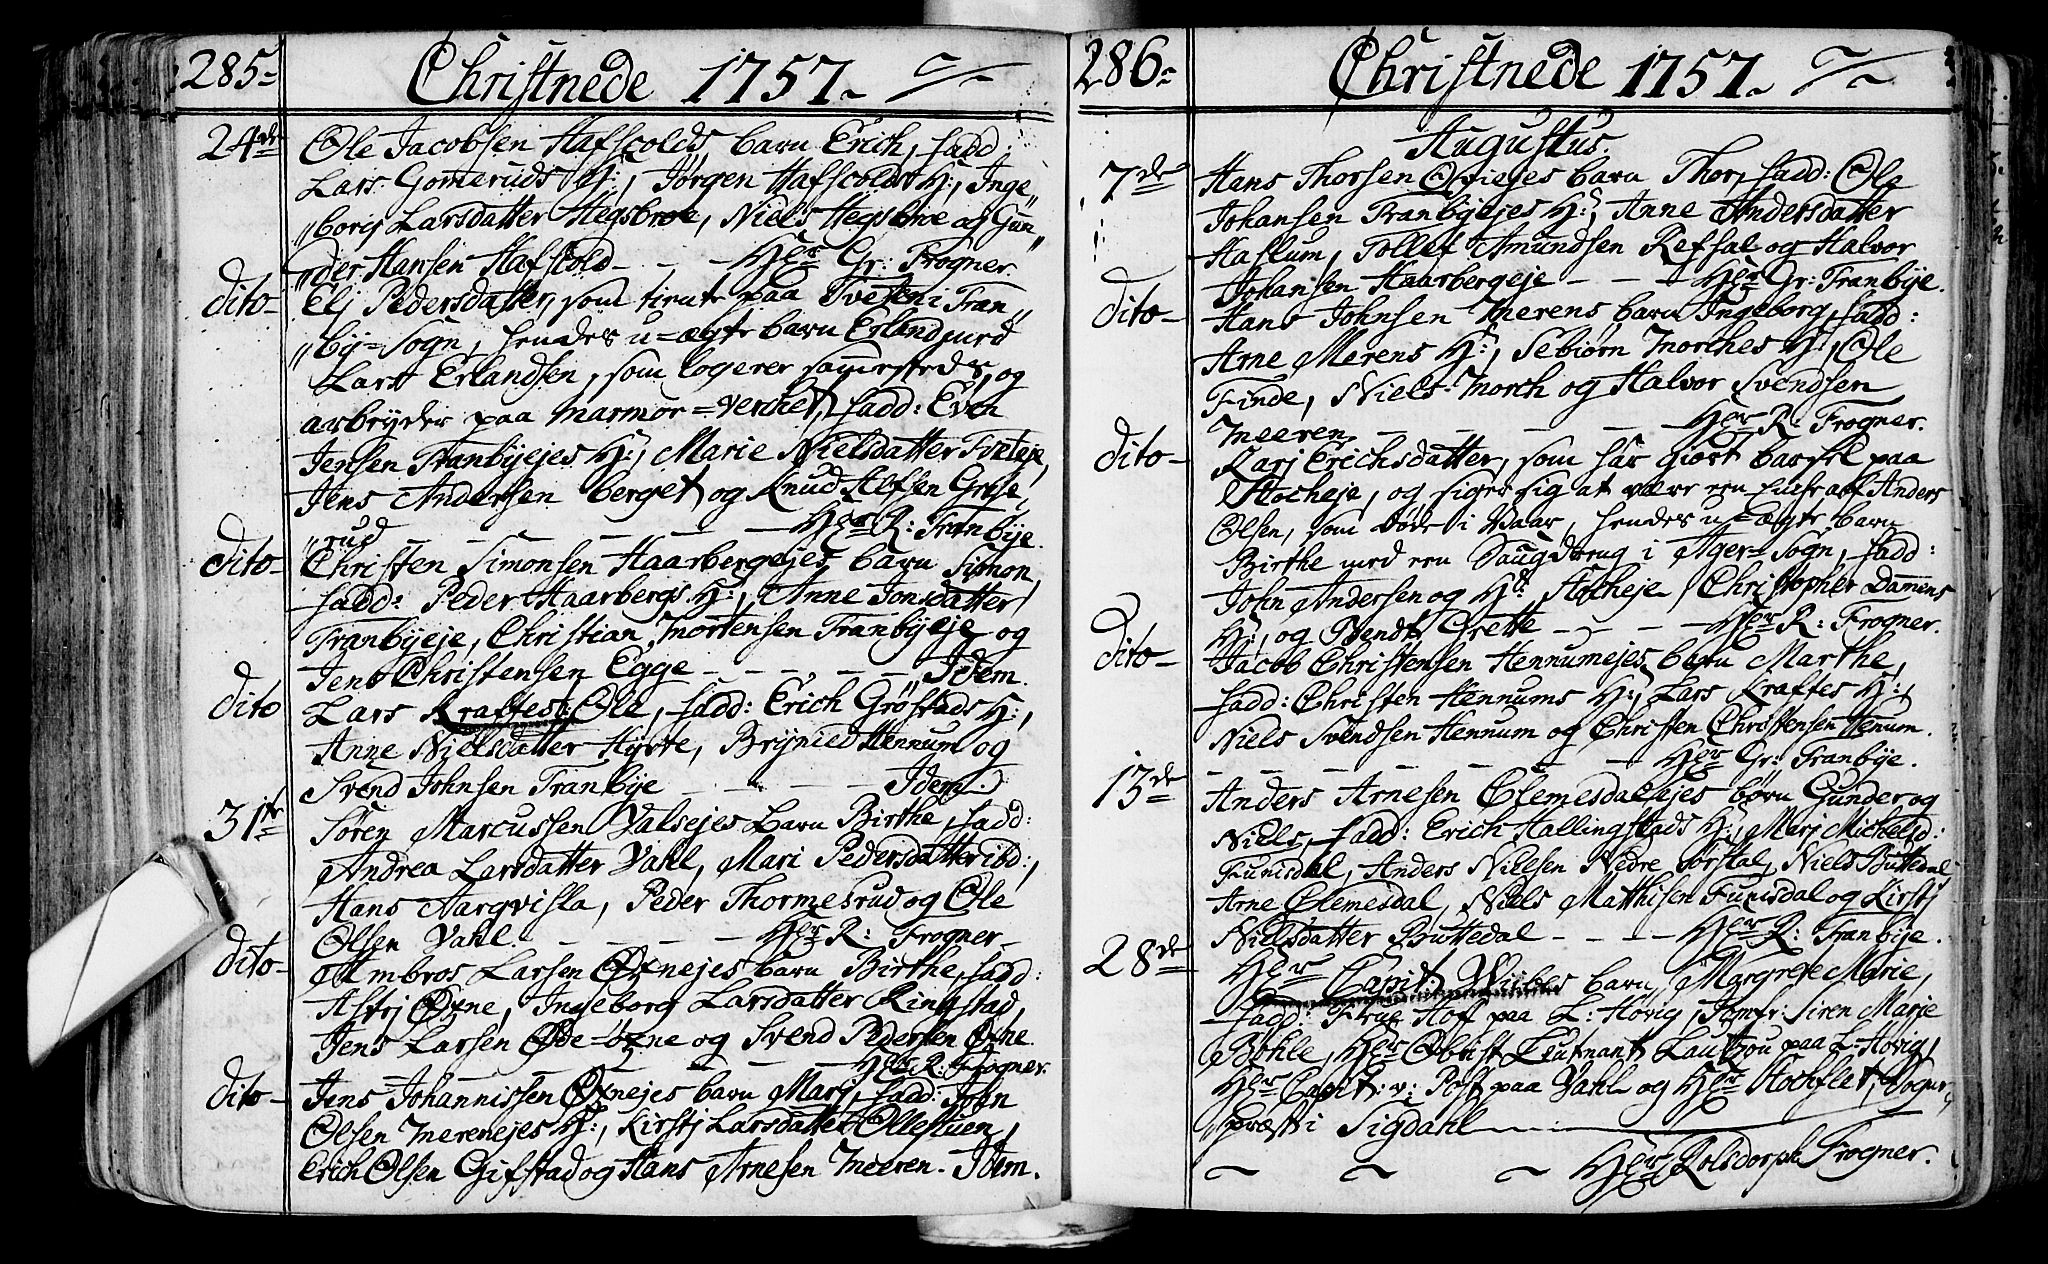 285 Christnede 1757.
24de Ole Jacobsen Hafscolds barn Erich, fadd:
Lars Gomeruds H:, Jørgen Hafscolds H:, Inge„
„borg Larsdatter Hegsbroe, Niels Hegsbroe og Gun„
„der Hansen Hafscold - - - Her Gr: Frogner.
dito Elj Pedersdatter, som tiente paa Tveten i Tran„
„by=Sogn, hendes u=ægte barn Erland med
Lars Erlandsen, som logerer sammesteds, og
arbeyder paa Marmor=verchet, fadd: Even
Jensen Tranbyejes H:, Marie Nielsdatter Tveteje,
Jens Andersen berget og Knud Alfsen Grøse„
„rud - - - - - Her R: Tranbye.
dito Christen Simonsen Haarbergejes barn Simon,
fadd: Peder Haarbergs H:, Anne Jonsdatter
Tranbyeje, Christian Mortensen Tranbyeje og
Jens Christensen Egge - - - - - Idem.
dito Lars Kraftes: Ole, fadd: Erich Grøstads H:,
Anne Nielsdatter Hyrte, Brynild Hennum og
Svend Johnsen Tranbye - - - - Idem.
31te Søren Marcussen Valsejes barn Birthe, fadd:
Andrea Larsdatter Vahl, Mari Pedersdatter ibd:,
Hans Aarqvisla, Peder Thormesrud og Ole
Olsen Vahl. - - - - Her R: Frogner.
dito Ambros Larsen Øxnejes barn Birthe, fadd:
Astrj Øxne, Ingeborg Larsdatter Ringstad,
Jens Larsen Øde=øxne og Svend Pedersen Øxne
- - - - - Her R: Frogner.
dito Jens Johannissen Øxnejes barn Marj, fadd: John
Olsen Merenejes H:, Kirstj Larsdatter Ollestuen,
Erich Olsen Gifstad og Hans Arnesen Meeren. Idem.
286 Christnede 1757.
Augustus.
7de Hans Thorsen Oveiejes barn Thor, fadd: Ole
Johansen Tranbyejes H:, Anne Andersdatter
Haslum, Tollef Amundsen Refsal og Halvor
Johansen Haarbergeje - - - Her Gr: Tranbye.
dito Hans Johnsen Merens barn Ingeborg, fadd:
Arne Merens H:, Sebiørn Morches H:, Ole
Finde, Niels Morch og Halvor Svendsen
Meeren - - - - - Her R: Frogner.
dito Karj Erichsdatter, som har giort barsel paa
Stocheje, og siger sig at være en Enke af Anders
Olsen, som døde i Vaar, hendes u=ægte barn
Birthe med en Saugdreng i Ager=Sogn, fadd:
John Andersen og H: Stocheje, Christopher Damens
H:, og Bendt Grette - - - Her R: Frogner.
dito Jacob Christensen Hennumejes barn Marthe,
fadd: Christen Hennums H:, Lars Kraftes H:,
Niels Svendsen Hennum og Christen Christensen Hennum.
- - - - - Her Gr: Tranbye.
13de Anders Arnesen Clemesdalejes børn Gunder og
Niels, fadd: Erich Hallingstads H:, Marj Michelsd:
Funisdal, Anders Nilesen Nedre Sørstal, Niels Buttedal,
Arne Clemesdal, Niels Matthisen Funisdal og Kirstj
Nielsdatter Buttedal - - - - Her R: Tranbye.
28de Her Capit: Wiibes barn Margrete Marie,
fadd: Frue Hof paa L: Høvig, Jomfr: Siren Marie
Bøhle, Her Obrist Leutnant Lautzou paa L: Høvig,
Her Capit: v: Post paa Vahl og Her Stochflet, Sogne„
„præst i Sigdahl
Her Rolsdorph Frogner.